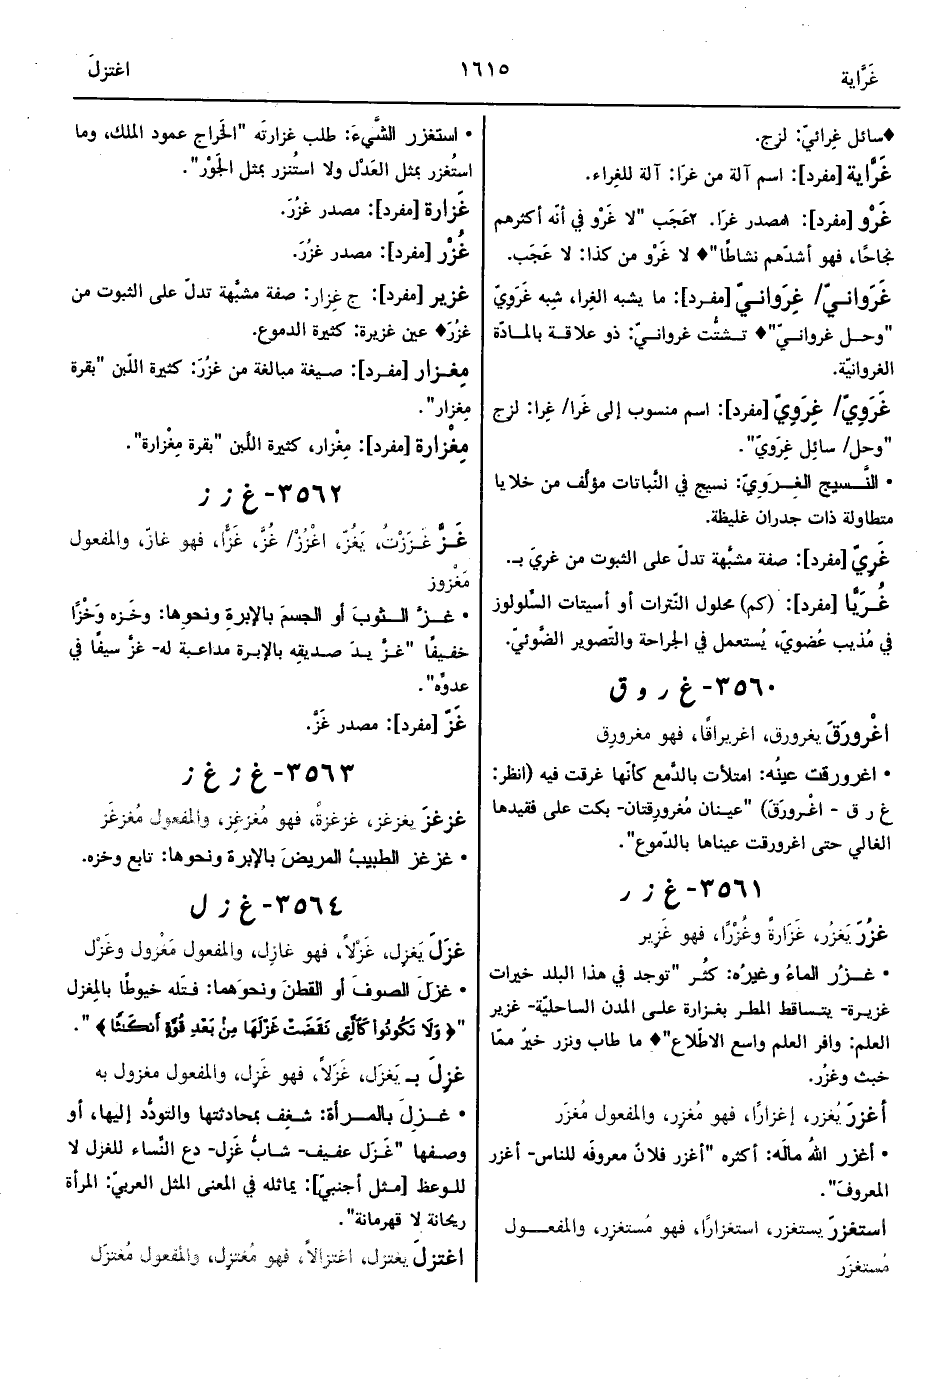 غَرَّاية
١٦١٥
اغتزلَ
♦سائل غِرائيّ: لزج.
غَرَّاية [مفرد]: اسم آلة من غرَا: آلة للغِراء.
غَرْو [مفرد]: ١مصدر غرَا. ٢عَجَب "لا غَرْو في أنّه أكثرهم
نجاحًا، فهو أشدّهم نشاطًا"♦ لا غَرْو من كذا: لا عَجَب.
غَرَوانيّ/ غِرَوانيّ [مفرد]: ما يشبه الغِرا، شِبه غَرَوِيّ
"وحل غروانيّ"♦ تشتُّت غروانيّ: ذو علاقة بالمادّة
الغروانيّة.
غَرَوِيّ/ غِرَوِيّ [مفرد]: اسم منسوب إلى غَرا/ غِرا: لزج
"وحل/ سائِل غِرَويّ".
• النَّسيج الغِرَوِيّ: نسيج في النَّباتات مؤلّف من خلايا
متطاولة ذات جدران غليظة.
غَرِيّ [مفرد]: صفة مشبَّهة تدلّ على الثبوت من غرِيَ بـ.
غُرَيَّا [مفرد]: (كم) محلول النّترات أو أسيتات السِّلولوز
في مُذيب عُضويّ، يُستعمل في الجراحة والتّصوير الضَّوئيّ.
٣٥٦٠- غ ر و ق
اغْرورَقَ يغرورق، اغريراقًا، فهو مغرورِق
• اغرورقت عينُه: امتلأت بالدَّمع كأنّها غرقت فيه (انظر:
غ ر ق - اغْرورَقَ) "عينان مُغرورِقتان- بكت على فقيدها
الغالي حتى اغرورقت عيناها بالدّموع".
٣٥٦١- غ ز ر
غزُرَ يَغزُر، غَزارةً وغُزْرًا، فهو غَزير
• غزُر الماءُ وغيرُه: كثُر "توجد في هذا البلد خيرات
غزيرة- يتساقط المطر بغزارة على المدن الساحليّة- غزير
العلم: وافر العلم واسع الاطّلاع"♦ ما طاب ونزر خيرٌ ممّا
خبث وغزُر.
أغزرَ يُغزر، إغزارًا، فهو مُغزِر، والمفعول مُغزَر
• أغزر اللهُ مالَه: أكثره "أغزر فلانٌ معروفَه للناس- أغزر
المعروفَ".
استغزرَ يستغزر، استغزارًا، فهو مُستغزِر، والمفعول
مُستغزَر
• استغزر الشَّيءَ: طلب غزارتَه "الخَراج عمود الملك، وما
استُغزر بمثل العَدْل ولا استُنزر بمثل الجَوْر".
غَزارة [مفرد]: مصدر غزُرَ.
غُزْر [مفرد]: مصدر غزُرَ.
غزير [مفرد]: ج غِزار: صفة مشبَّهة تدلّ على الثبوت من
غزُرَ♦ عين غزيرة: كثيرة الدموع.
مِغزار [مفرد]: صيغة مبالغة من غزُرَ: كثيرة اللّبن "بقرة
مِغزار".
مِغْزارة [مفرد]: مِغْزار، كثيرة اللَّبن "بقرة مِغْزارة".
٣٥٦٢- غ ز ز
غَزَّ غَزَزْتُ، يَغُزّ، اغْزُزْ/ غُزَّ، غَزًّا، فهو غازّ، والمفعول
مَغْزوز
• غزَّ الثوبَ أو الجسمَ بالإبرة ونحوها: وخَزه وَخْزًا
خفيفًا "غزَّ يدَ صديقِه بالإبرة مداعبة له- غزَّ سيفًا في
عدوِّه".
غَزّ [مفرد]: مصدر غَزَّ.
٣٥٦٣- غ ز غ ز
غزغزَ يغزغز، غزغزةً، فهو مُغزغِز، والمفعول مُغزغَز
• غزغز الطبيبُ المريضَ بالإبرة ونحوها: تابع وخزه.
٣٥٦٤- غ ز ل
غزَلَ يَغزِل، غَزْلاً، فهو غازِل، والمفعول مَغْزول وغَزْل
• غزلَ الصوفَ أو القطنَ ونحوَهما: فتَله خيوطًا بالمِغزل
"﴿ وَلَا تَكُونُوا كَالَّتِي نَقَضَتْ غَزْلَهَا مِنْ بَعْدِ قُوَّةٍ أَنكَثًا ﴾".
غزِلَ بـ يَغزَل، غَزَلاً، فهو غَزِل، والمفعول مغزول به
• غزِلَ بالمرأة: شغِف بمحادثتها والتودُّد إليها، أو
وصفها "غَزَل عفيف- شابٌّ غَزِل- دع النِّساء للغزل لا
للوعظ [مثل أجنبيّ]: يماثله في المعنى المثل العربيّ: المرأة
ريحانة لا قهرمانة".
اغتزلَ يغتزل، اغتزالاً، فهو مُغتزِل، والمفعول مُغتزَل